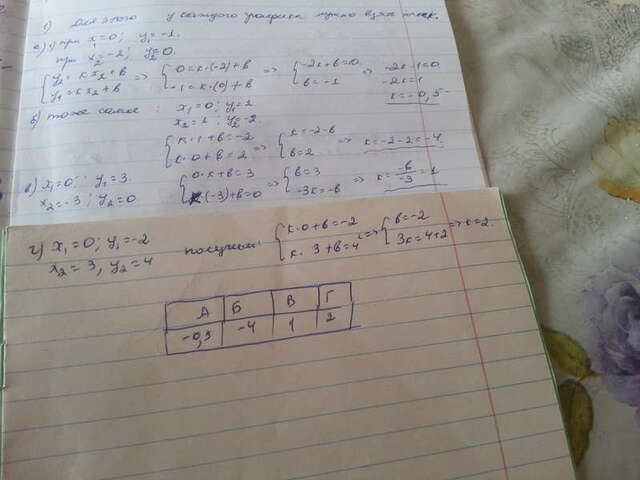 1) Для этого у каждого графика нужно взять точек.
а) 1) при x=0; y₁=-1.
при x₂=-2; y₂=0.
{y₂=kx₂+b y₁=kx₁+b => {0=k·(-2)+b -1=k·(0)+b => {-2k+b=0 b=-1 => -2k-1=0 -2k=1 k=-0,5
б) тоже самое: x₁=0; y₁=2 x₂=1; y₂=-2
{k·1+b=-2 k·0+b=2 => {k=-2-b b=2 => k=-2-2=-4.
в) x₁=0; y₁=3. x₂=-3; y₂=0
{0·k+b=3 k(-3)+b=0 => {b=3 -3k=-b => k=-b/-3=1
г) x₁=0; y₁=-2 x₂=3, y₂=4
получим: {k·0+b=-2 k·3+b=4 => {b=-2 3k=4+2 => k=2.
А Б В Г
-0,5 -4 1 2